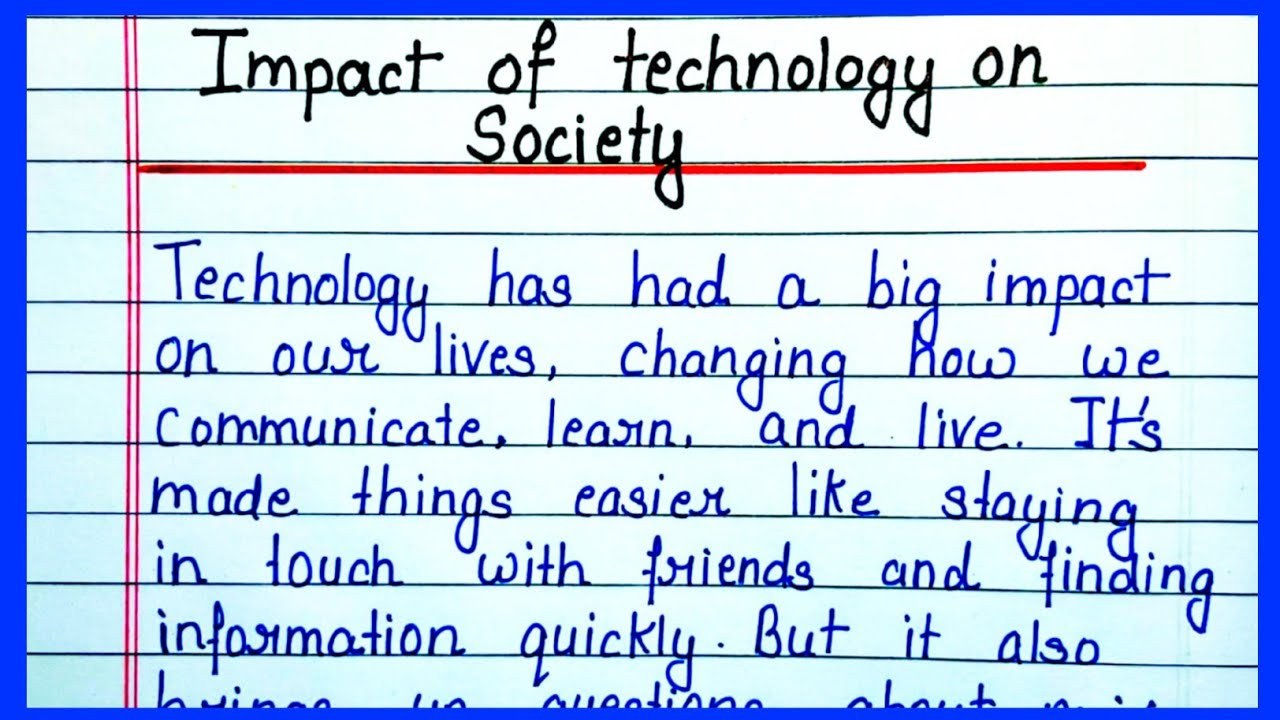 Impact of technology on
Society
Technology has had a big impact
on our lives, changing how we
communicate, learn, and live. It's
made things easier like staying
in touch with friends and finding
information quickly. But it also
brings up questions about